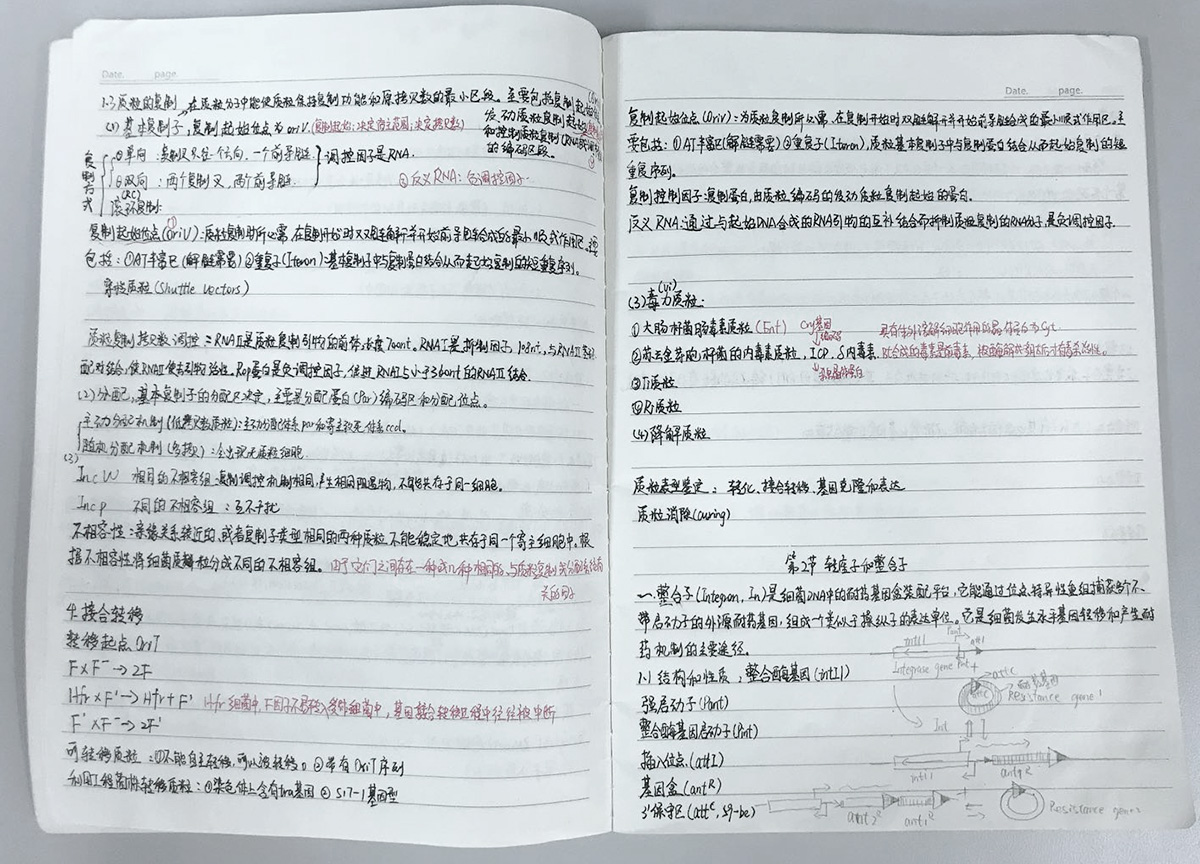 Date. page.
1.3 质粒的复制 在质粒分子中能使质粒保持复制功能和原拷贝数的最小区段。至少包括复制起始
(1) 基本复制子,复制起始位点为oriV.(复制起始;决定宿主范围;决定拷贝数)
发动质粒复制起始
和控制质粒复制(RNA或
的编码区段。
复制方式
①单向:复制叉只往一个方向,一个前导链
②双向:两个复制叉,两个前导链
(RC)
滚环复制:
调控因子是RNA.
反义RNA:负调控因子.
复制起始位点(OriV):质粒复制时所必需,在复制开始时双链解开并开始前导链合成的最小顺式作用区。主要
包括:①AT丰富区(解链需要)②重复子(Iteron):基本复制子中与复制蛋白结合从而起始复制的短重复序列。
穿梭质粒(Shuttle vectors)
质粒复制拷贝数调控:RNAⅡ是质粒复制引物的前体,长度700nt。RNAⅠ是抑制因子,108nt,与RNAⅡ
配对结合,使RNAⅡ失去引物活性。Rop蛋白是负调控因子,促进RNAⅠ与小于360nt的RNAⅡ结合.
(2)分配区,基本复制子的分配区决定,主要是分配蛋白(Par)编码区和分配位点。
主动分配机制(低拷贝数质粒):主动分配体系par和寄主致死体系ccd.
随机分配机制(多拷贝):会出现无质粒细胞.
(3)
Inc W 相同的不相容组:复制调控机制相同,产生相同阻遏物,不能共存于同一细胞。
Inc P 不同的不相容组:互不干扰
不相容性:亲缘关系接近的,或者复制子类型相同的两种质粒不能稳定地共存于同一个寄主细胞中。根
据不相容性将细菌质粒分成不同的不相容组。由于它们之间存在一种或几种相同的,与质粒复制或分配系统有
关的因子
4.接合转移
转移起点 OriT
F×F⁻→2F
Hfr×F⁻→Hfr+F⁻ Hfr细菌中,F因子不易转入受体细菌中,基因接合转移过程中往往被中断
F'×F⁻→2F'
可转移质粒:①不能自主转移,可以被转移。②带有OriT序列
利用工程菌株转移质粒:①染色体上含有tra基因 ② S17-1基因型
Date. page.
复制起始位点(OriV):为质粒复制所必需,在复制开始时双链解开并开始前导链合成的最小顺式作用区。主
要包括:①AT丰富区(解链需要)②重复子(Iteron),质粒基本复制子中与复制蛋白结合从而起始复制的短
重复序列。
复制控制因子:复制蛋白,由质粒编码的发动质粒复制起始的蛋白。
反义RNA:通过与起始DNA合成的RNA引物的互补结合而抑制质粒复制的RNA分子,是负调控因子.
(Vi)
(3)毒力质粒:
①大肠杆菌肠毒素质粒(Ent) Cry基因 具有体外溶解细胞作用的晶体蛋白为Cyt.
↓编码
②苏云金芽孢杆菌的内毒素质粒,ICP,δ内毒素.
杀虫晶体蛋白
③Ti质粒
④Ri质粒
(4)降解质粒
质粒表型鉴定:转化、接合转移、基因克隆和表达
质粒消除(curing)
第2节 转座子和整合子
一.整合子(Integron, In)是细菌DNA中的耐药基因盒装配平台,它能通过位点特异性重组捕获多个不
带启动子的外源耐药基因,组成一个类似于操纵子的表达单位。它是细菌发生水平基因转移和产生耐
药机制的主要途径。
1.1 结构和性质,整合酶基因(intI1)
强启动子(Pant)
整合酶基因启动子(Pint)
插入位点(attI)
基因盒(antR)
3'保守区(attC, 59-be)
intI1
Pant
attI
Integrase gene Pint
attC
耐药基因
Resistance gene1
Int
intI1
ant1R
ant2R
ant1R
Resistance gene2